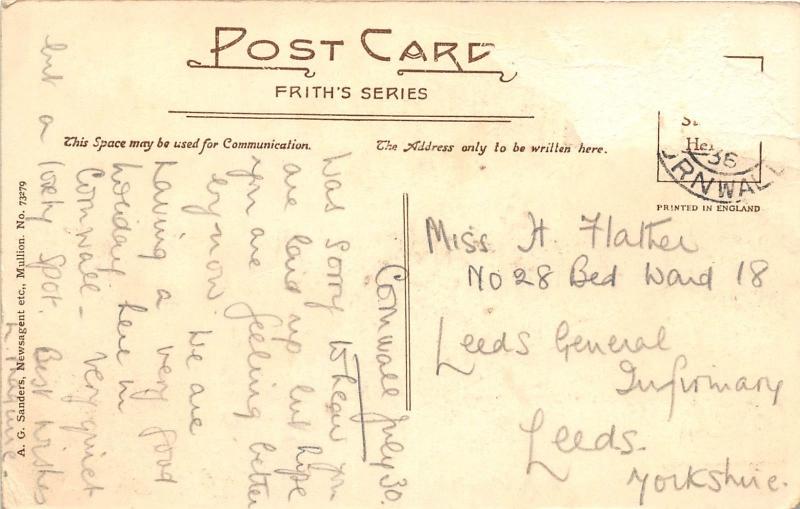 POST CARD
FRITH'S SERIES
This Space may be used for Communication.
The Address only to be written here.
36
RNWAL
PRINTED IN ENGLAND
A. G. Sanders, Newsagent etc., Mullion. No. 73279
Cornwall July 30.
Was sorry to hear you
are laid up but hope
you are feeling better
by now. We are
having a very good
holiday here in
Cornwall - very quiet
but a lovely spot. Best wishes
Miss H. Flather
No 28 Bed Ward 18
Leeds General
Infirmary
Leeds.
Yorkshire.